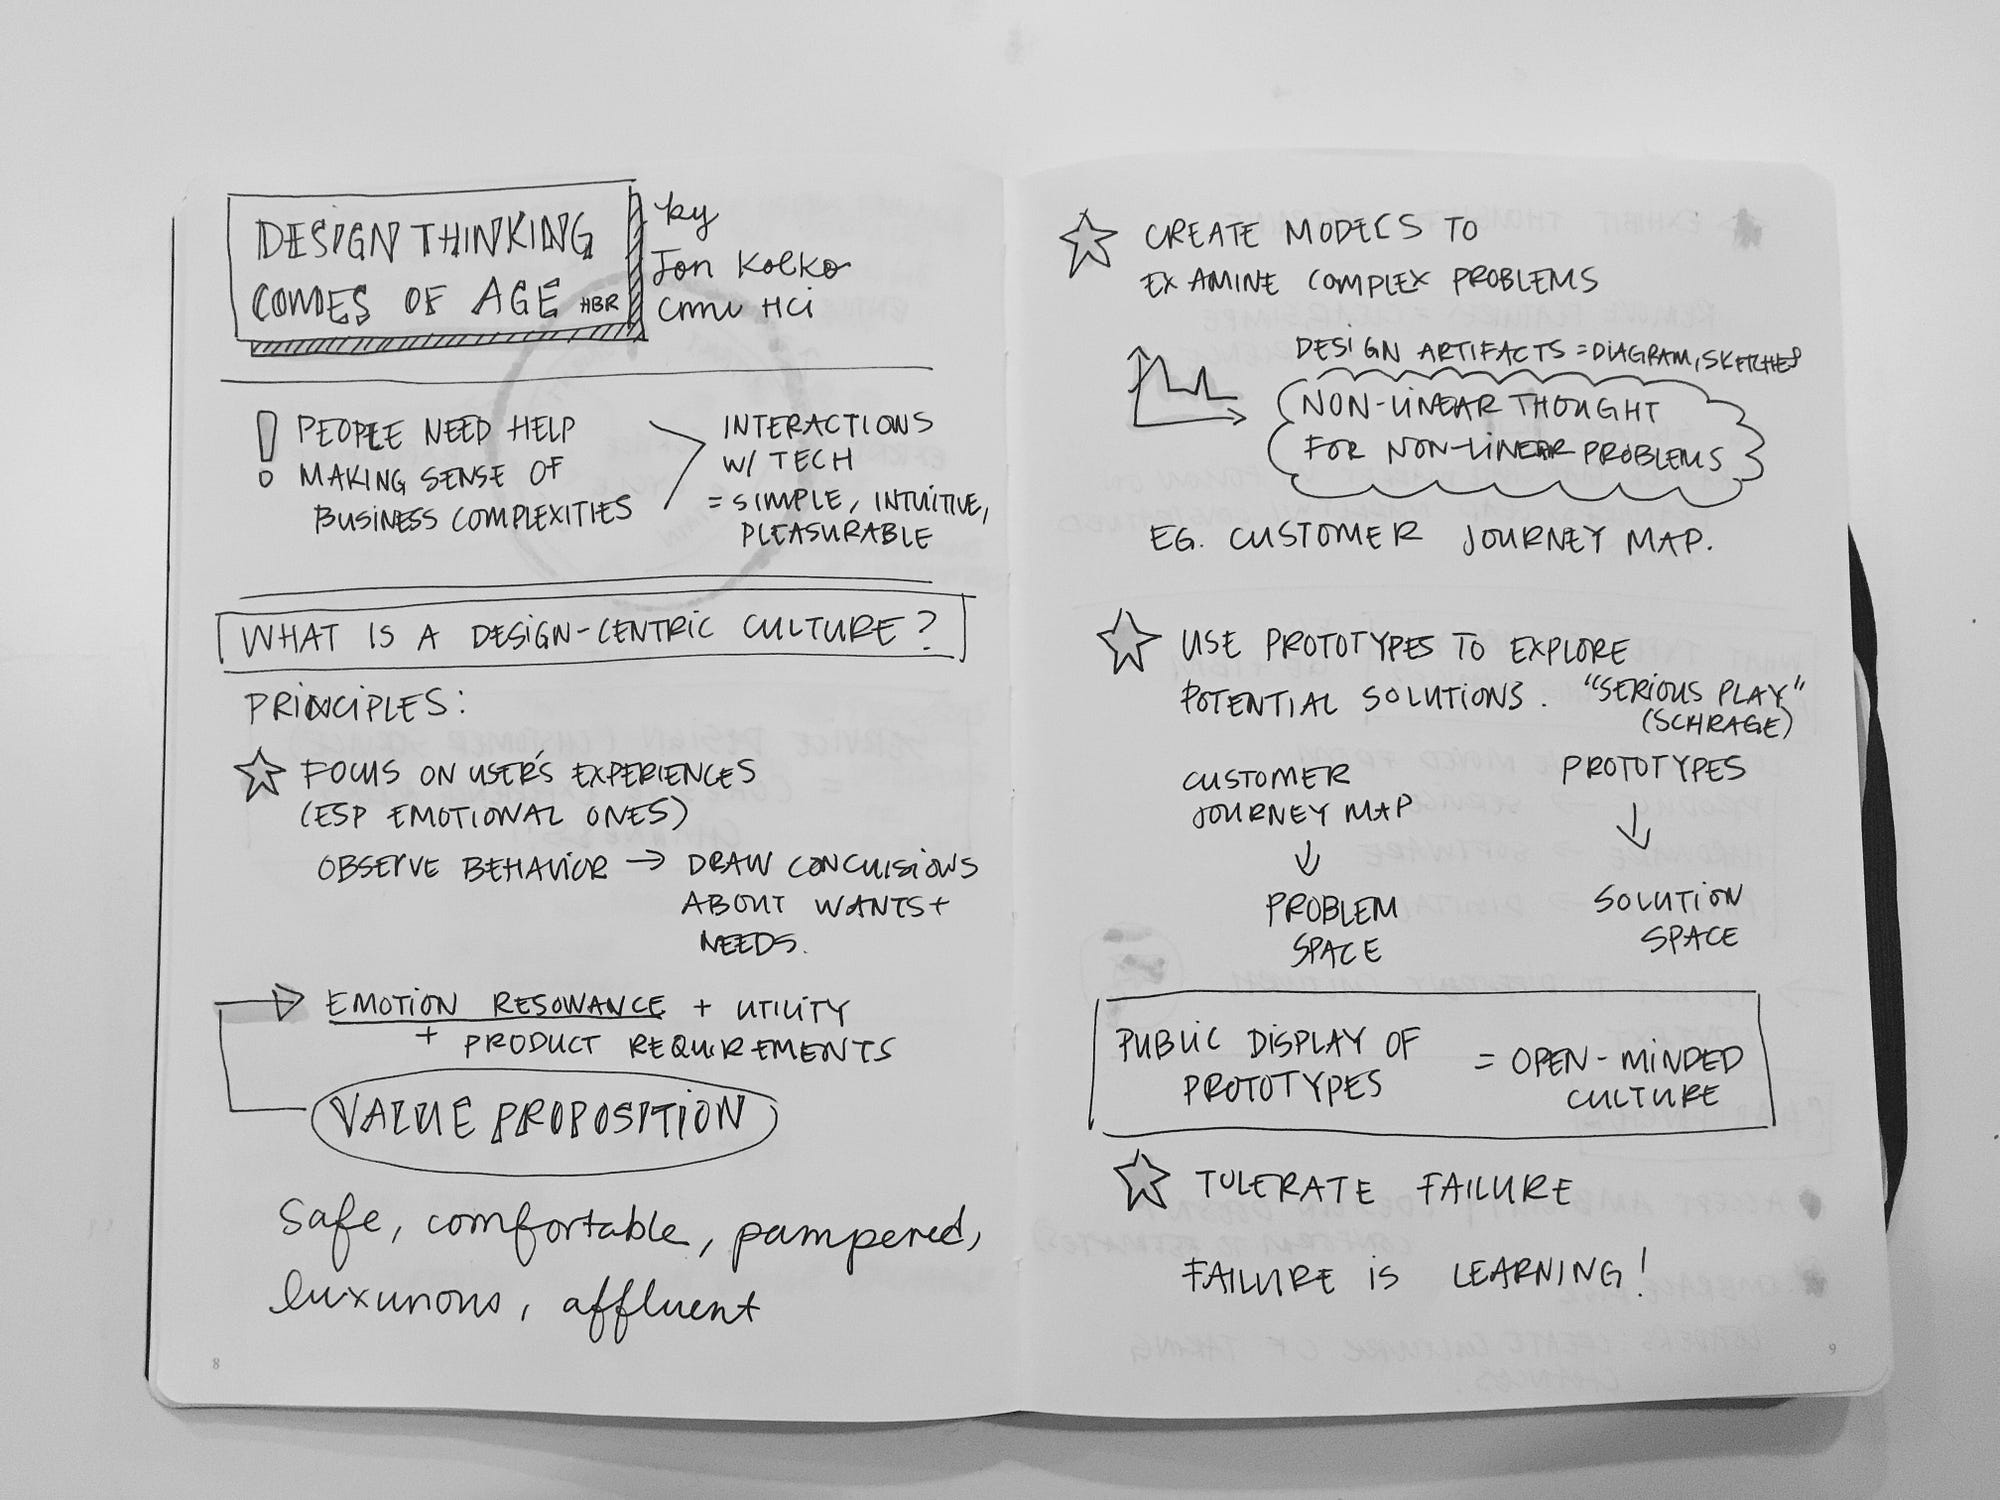 DESIGN THINKING
COMES OF AGE HBR
by
Jon Kolko
CMU HCi
! PEOPLE NEED HELP
MAKING SENSE OF
BUSINESS COMPLEXITIES
INTERACTIONS
W/ TECH
= SIMPLE, INTUITIVE,
PLEASURABLE
WHAT IS A DESIGN-CENTRIC CULTURE?
PRINCIPLES:
FOCUS ON USER'S EXPERIENCES
(ESP EMOTIONAL ONES)
OBSERVE BEHAVIOR → DRAW CONCLUSIONS
ABOUT WANTS +
NEEDS.
EMOTION RESONANCE + UTILITY
+ PRODUCT REQUIREMENTS
VALUE PROPOSITION
Safe, comfortable, pampered,
luxurious, affluent
8
CREATE MODELS TO
EXAMINE COMPLEX PROBLEMS
DESIGN ARTIFACTS = DIAGRAM, SKETCHES
NON-LINEAR THOUGHT
FOR NON-LINEAR PROBLEMS
EG. CUSTOMER JOURNEY MAP.
USE PROTOTYPES TO EXPLORE
POTENTIAL SOLUTIONS. "SERIOUS PLAY"
(SCHRAGE)
CUSTOMER
JOURNEY MAP
↓
PROBLEM
SPACE
PROTOTYPES
↓
SOLUTION
SPACE
PUBLIC DISPLAY OF
PROTOTYPES
= OPEN-MINDED
CULTURE
TOLERATE FAILURE
FAILURE IS LEARNING!
9